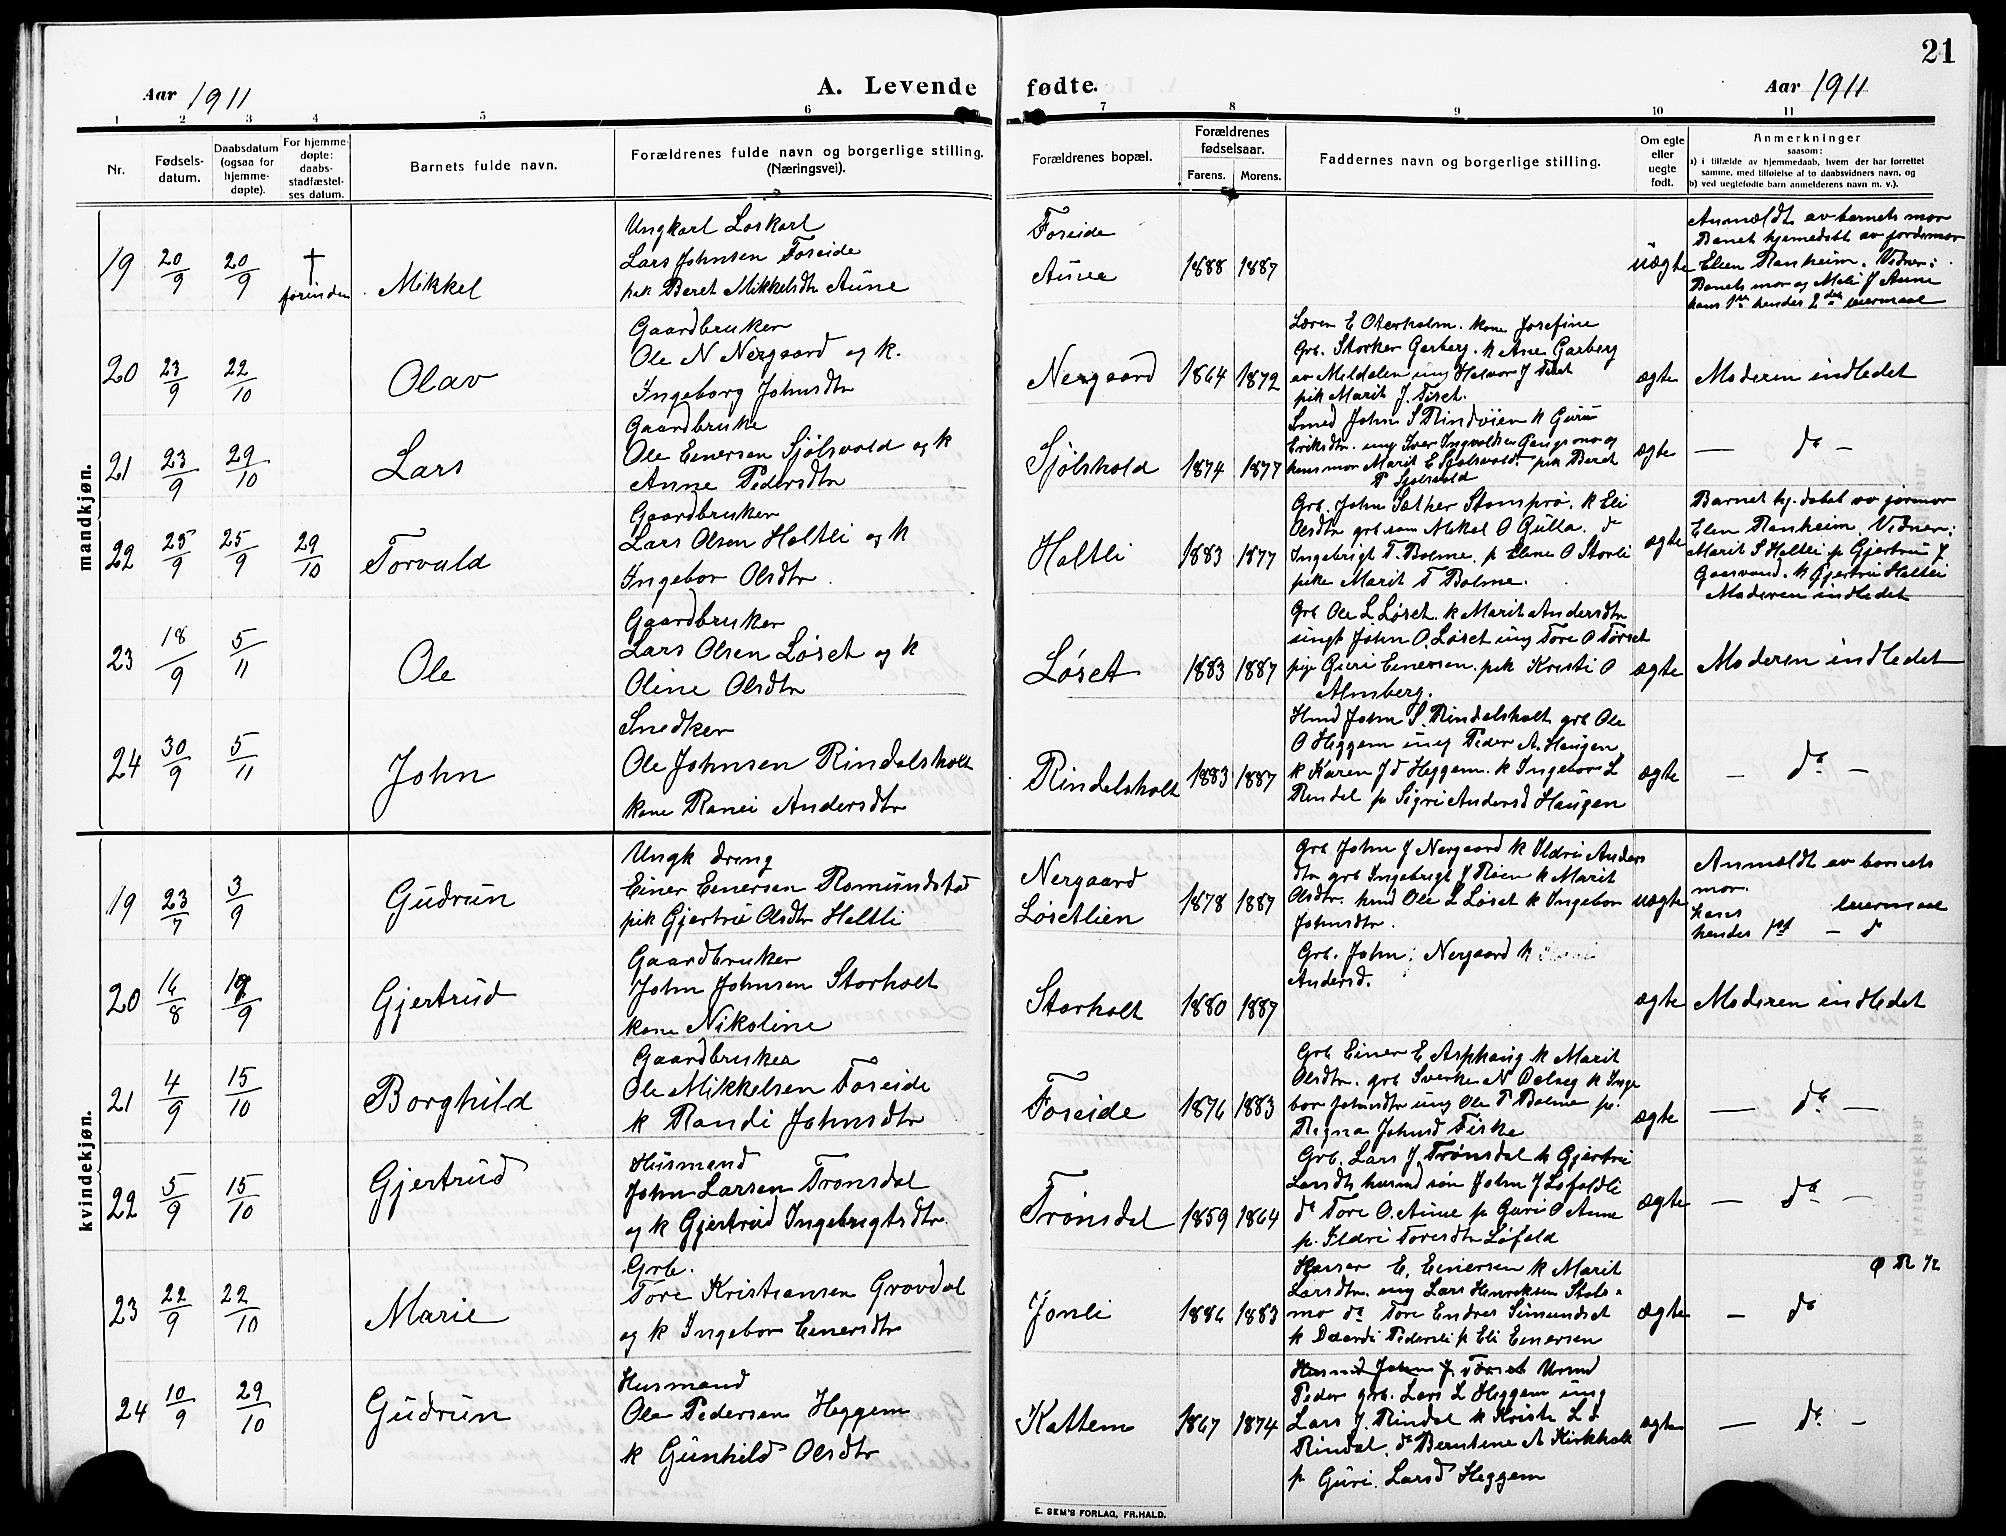 21
Aar 1911
A. Levende fødte.
Aar 1911
1 2 3 4 5 6 7 8 9 10 11
Nr.
Fødsels-
datum.
Daabsdatum
(ogsaa for
hjemme-
døpte).
For hjemme-
døpte:
daabs-
stadfæstel-
ses datum.
Barnets fulde navn.
Forældrenes fulde navn og borgerlige stilling.
(Næringsvei).
Forældrenes bopæl.
Forældrenes
fødselsaar.
Farens. Morens.
Faddernes navn og borgerlige stilling.
Om egte
eller
uegte
født.
Anmerkninger
saasom:
a) i tilfælde av hjemmedaab, hvem der har forrettet
samme, med tilføielse af to daabsvidners navn, og
b) ved uegtefødte barn anmelderens navn m. v.).
mandkjøn.
19 20/9 20/9 † forinden Mikkel
Ungkarl Løskarl
Lars Johnsen Foseide
pik Beret Mikkelsdtr Aune
Foseide
Aune
1888 1887
uægte
Anmældt av barnets mor
Barnet hjemedøbt av jordemor
Elen Ranheim. Vidner:
Barnets mor og Mali J Aune
hans 1ste hendes 2det leiermaal
20 23/9 22/10 Olav
Gaardbruker
Ole N Nergaard og k.
Ingeborg Johnsdtr
Nergaard 1864 1872
Lærer E Oterholm. kone Josefine
Grb. Storker Garberg. k Ane Garberg
av Meldalen ung Halvor J Tiset
pik Marit J. Tiset.
ægte Moderen indledet
21 23/9 29/10 Lars
Gaardbruke
Ole Einersen Sjølsvold og k
Anne Pedersdtr
Sjølshold 1874 1877
Smed John S Rindvoien k Guru
Eriksdtr. ung Iver Ingvaldsen Gangsmo og
hans mor Marit E Sjølsvold. pik Beret
P Sjølsvold
ægte — do —
22 25/9 25/9 29/10 Torvald
Gaardbruker
Lars Olsen Holtli og k
Ingebor Olsdtr.
Holtli 1883 1877
Grb. John Sæther Stomprø. k Eli
Olsdtr grb søn Mikal O Gulla. do
Ingebrigt T. Bolme. p Eline O Storli
pike Marit T Bolme.
ægte
Barnet hj. døbt av jormor
Elen Ranheim. Vidner:
Marit S Holtli p Gjertru J
Gaasvand. k Gjertru Holtli
Moderen indledet
23 18/9 5/11 Ole
Gaardbruker
Lars Olsen Løset og k
Oline Olsdtr
Løset 1883 1887
Grb Ole L Løset. k Marit Andersdtr
ungk John O. Løset ung Tore O Torset
pige Guri Einersen. pik Kristi O
Almberg.
ægte Moderen indledet
24 30/9 5/11 John
Snedker
Ole Johnsen Rindalsholt
kone Ranei Andersdtr
Rindalsholt 1883 1887
Hmd John S. Rindalsholt grb Ole
O Heggem ung Peder A. Haugen
k Karen J d Heggem. k Ingebor L
Rindal p Sigri Andersd Haugen
ægte — do —
kvindekjøn.
19 23/7 3/9 Gudrun
Ungk dreng
Einer Einersen Romundstad
pik Gjertru Olsdtr Holtli
Nergaard
Løsetlien
1878 1887
Grb John J Nergaard k Ildri Anders
dtr grb Ingebrigt J Røen k Marit
Olsdtr. hmd Ole L Løset k Ingebor
Johnsdtr.
uægte
Anmældt av barnets
mor.
hans leiermaal
hendes 1ste — d
20 14/8 /9 Gjertrud
Gaardbruker
John Johnsen Storholt
kone Nikoline
Storholt 1880 1887
Grb. John J Nergaard k
Andersd.
ægte Moderen indledet
21 4/9 15/10 Borghild
Gaardbruker
Ole Mikkelsen Foseide
k Randi Johnsdtr
Foseide 1876 1883
Grb Einer E. Asphaug k Marit
Olsdtr. grb Sverke N Dalseg k Inge
bor Johnsdtr ung Ole T Bolme p.
Ragna Johnsd Fiske
ægte — do —
22 5/9 15/10 Gjertrud
Husmand
John Larsen Trønsdal
og k Gjertrud Ingebrigtsdtr
Trønsdal 1859 1864
Grb. Lars J. Trønsdal k Gjertru
Larsdtr husmd søn John J Løfaldli
do Tore O. Aune p Guri O Aune
p. Ildri Toresdtr Løfald
ægte — do —
23 22/9 22/10 Marie
Grb.
Tore Kristiansen Grøvdal
og k Ingebor Einersdtr
Jonli 1886 1883
E. Einersen k Marit
Larsdtr. ung Lars Henriksen Stols-
mo do Tore Endres Simundset
k Daardi Pedersli p Eli Einersen
ægte — do
24 10/9 29/10 Gudrun
Husmand
Ole Pedersen Heggem
k Gunhild Olsdtr
Kattem 1867 1874
Husmd John J. Torset
Peder grb. Lars L Heggem ung
Lars J. Rindal k Kristi L d
Rindal. do Berntine A Kirkholt
p Guri. Larsd Heggem
ægte — do —
E. SEM'S FORLAG, FR.HALD.